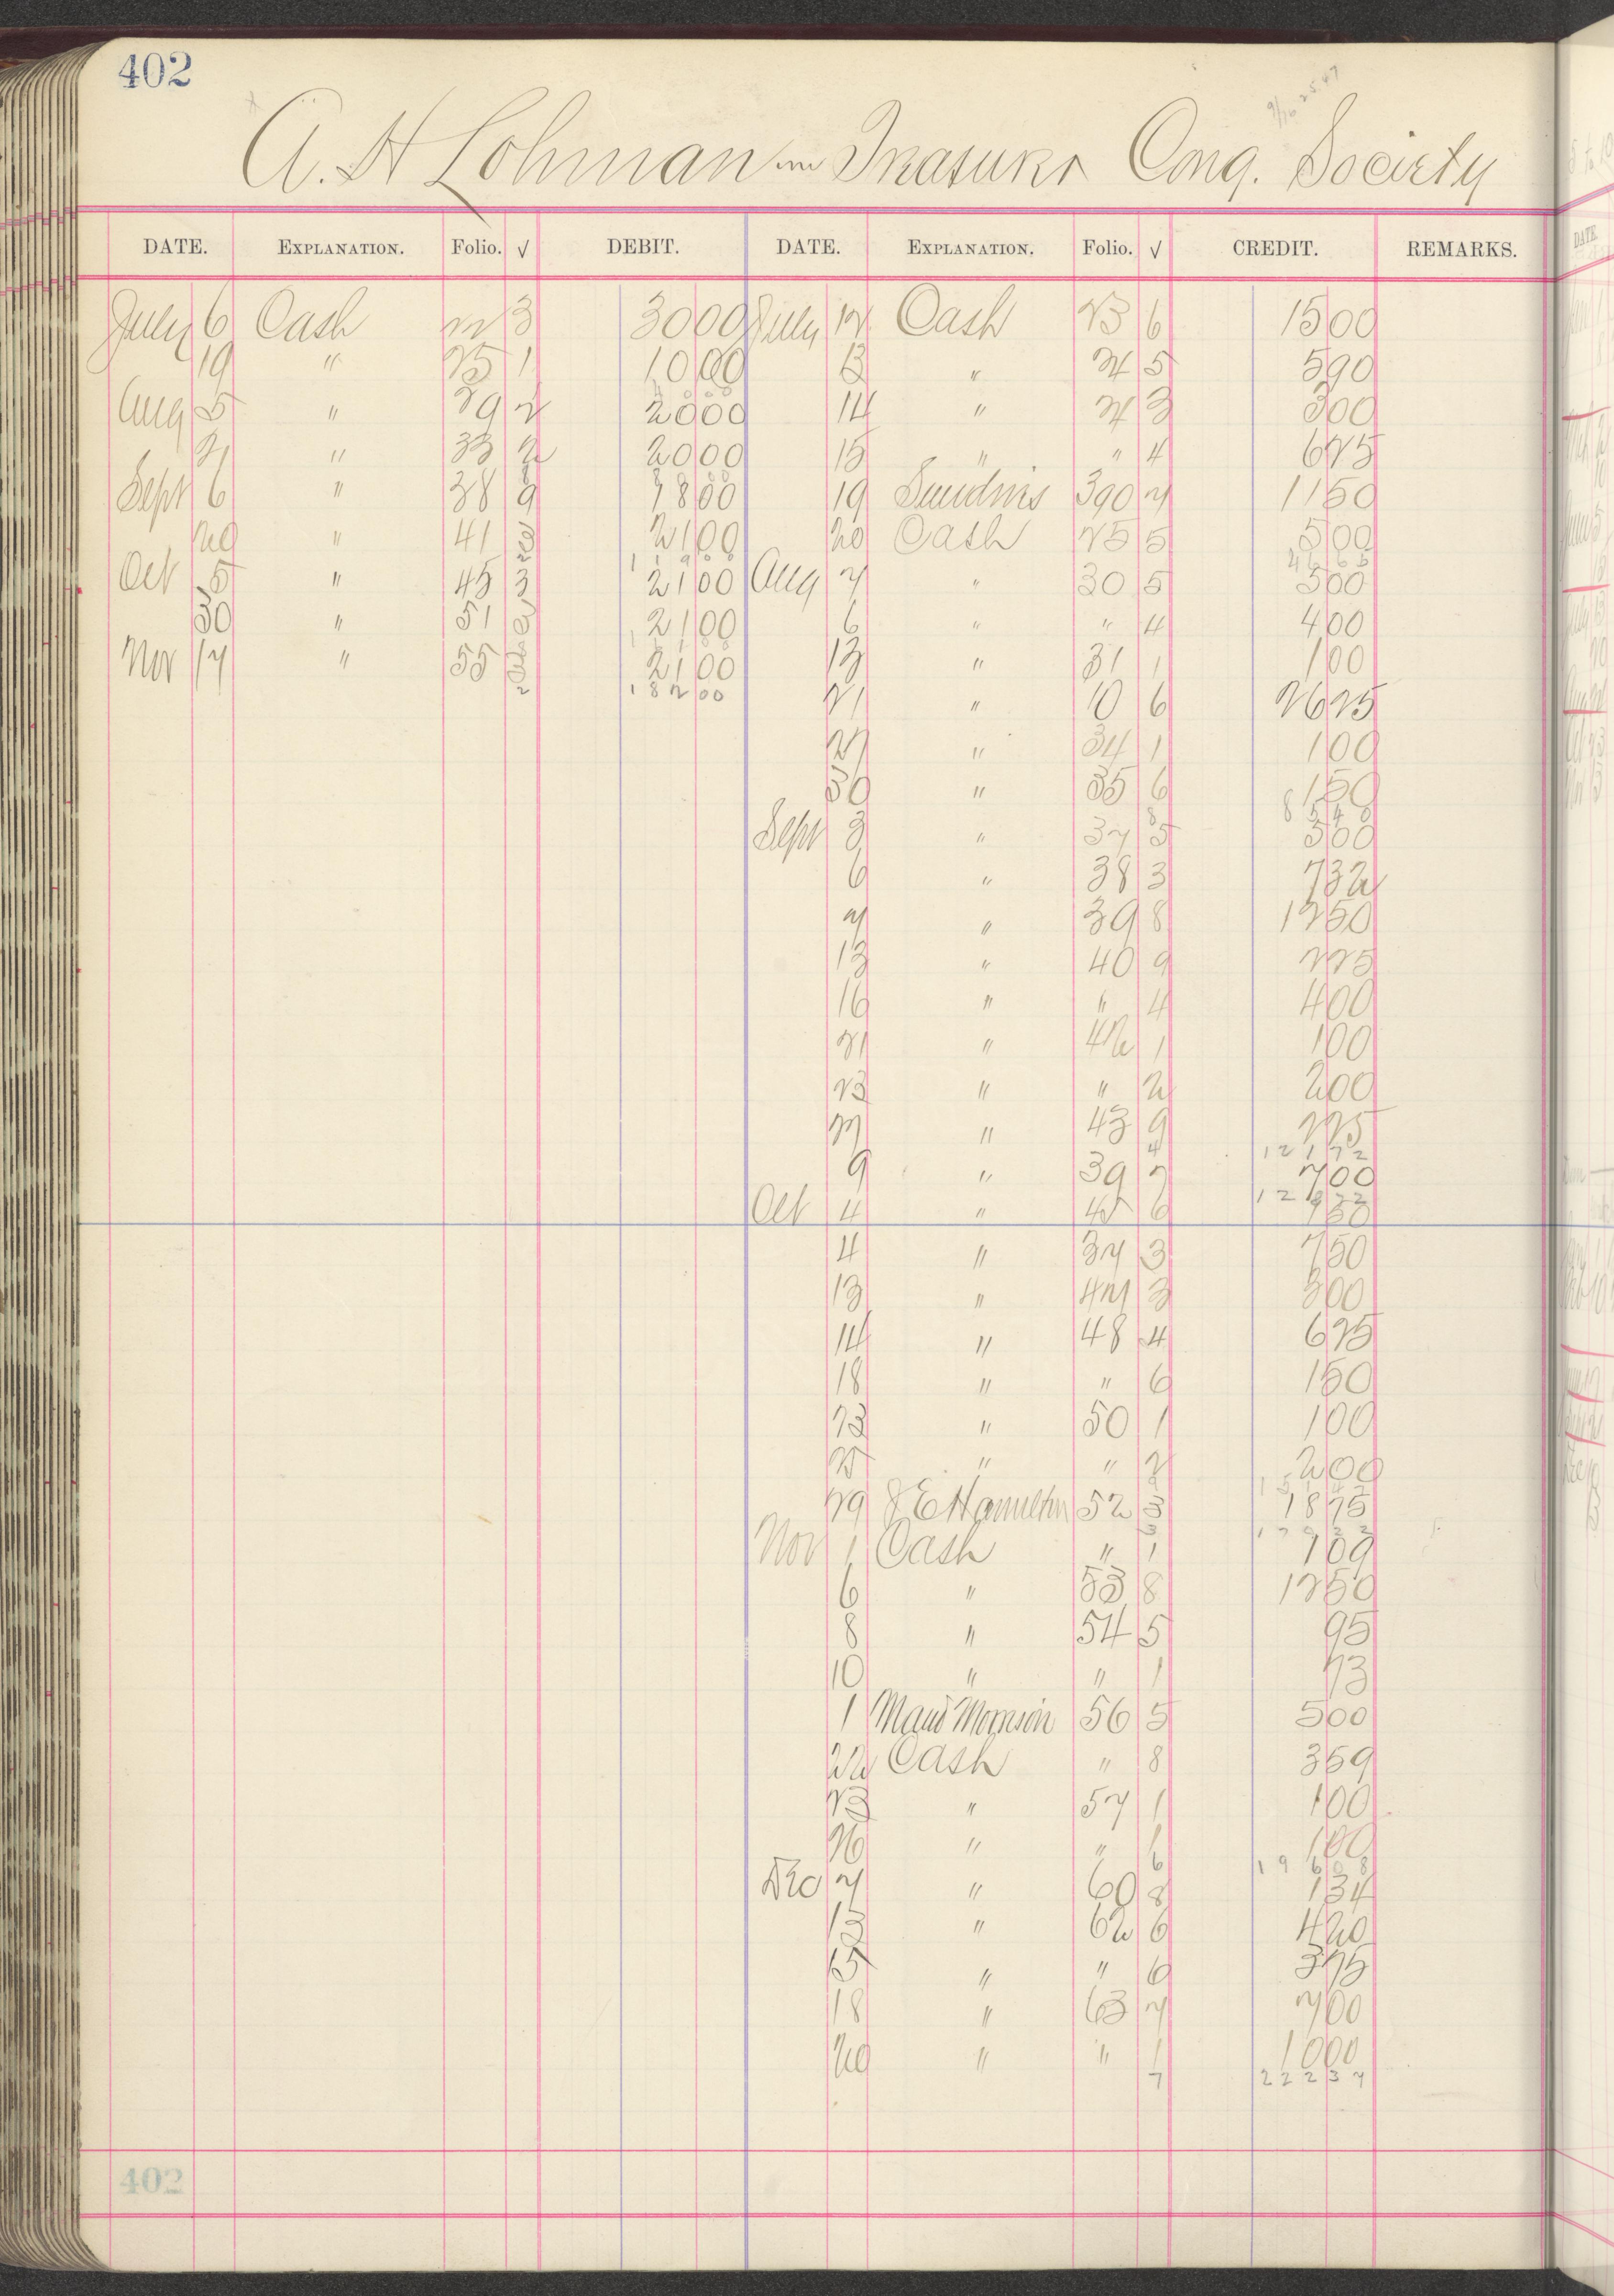 402
A. H Lohman in Treasurer Cong. Society
DATE. EXPLANATION. Folio. √ DEBIT. DATE. EXPLANATION. Folio. √ CREDIT. REMARKS.
July 6 Cash 22 3 30 00 July 12 Cash 23 6 15 00
19 " 25 1 10 00 13 " 24 5 5 90
Aug 5 " 29 2 20 00 14 " 24 3 3 00
21 " 33 2 20 00 15 " " 4 6 25
Sept 6 " 38 9 18 00 19 Sundries 390 7 11 50
20 " 41 21 00 20 Cash 25 5 5 00
46 65
Oct 5 " 45 3 21 00 Aug 2 " 30 5 5 00
30 " 51 21 00 6 " " 4 4 00
Nov 17 " 55 21 00 13 " 31 1 1 00
182 00 21 " 10 6 26 25
27 " 34 1 1 00
30 " 35 6 1 50
Sept 3 " 37 5 5 00
6 " 38 3 7 32
7 " 39 8 12 50
13 " 40 9 2 25
16 " " 4 4 00
21 " 42 1 1 00
23 " " 2 2 00
27 " 43 9 2 25
121 72
9 " 39 7 7 00
Oct 4 " 45 6
4 " 37 3 7 50
13 " 47 3 3 00
14 " 48 4 6 25
18 " " 6 1 50
23 " 50 1 1 00
25 " " 2 2 00
29 J E Hamilton 52 3 18 75
Nov 1 Cash " 1 1 09
6 " 53 8 12 50
8 " 54 5 95
10 " " 1 73
1 Maud Morrison 56 5 5 00
22 Cash " 8 3 59
23 " 57 1 1 00
26 " " 1 1 00
196 08
Dec 7 " 60 8 1 34
13 " 62 6 4 20
15 " " 6 3 75
18 " 63 7 7 00
20 " " 1 10 00
7 222 37
402